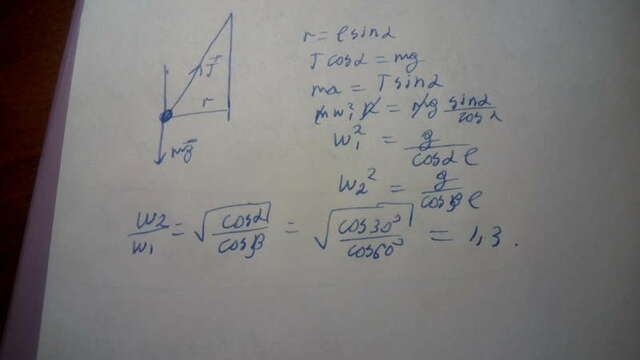 T⃗
r
mg⃗
r = ℓ sinα
T cosα = mg
ma = T sinα
m w₁² r = mg sinα / cosα
w₁² = g / cosα ℓ
w₂² = g / cosβ ℓ
w₂ / w₁ = √(cosα / cosβ) = √(cos30° / cos60°) = 1,3.